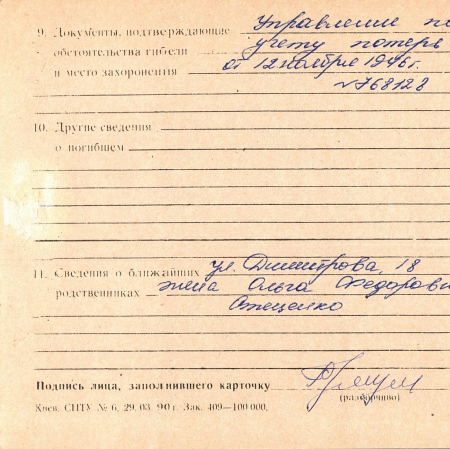 9. Документы, подтверждающие Управление по
обстоятельства гибели учету потерь
и место захоронения от 12 ноября 1946 г.
№768128
10. Другие сведения
о погибшем
11. Сведения о ближайших ул. Димитрова, 18
родственниках жена Ольга Федоровн
Подпись лица, заполнившего карточку
(разборчиво)
Киев. СПТУ № 6. 29. 03. 90 г. Зак. 409—100 000.